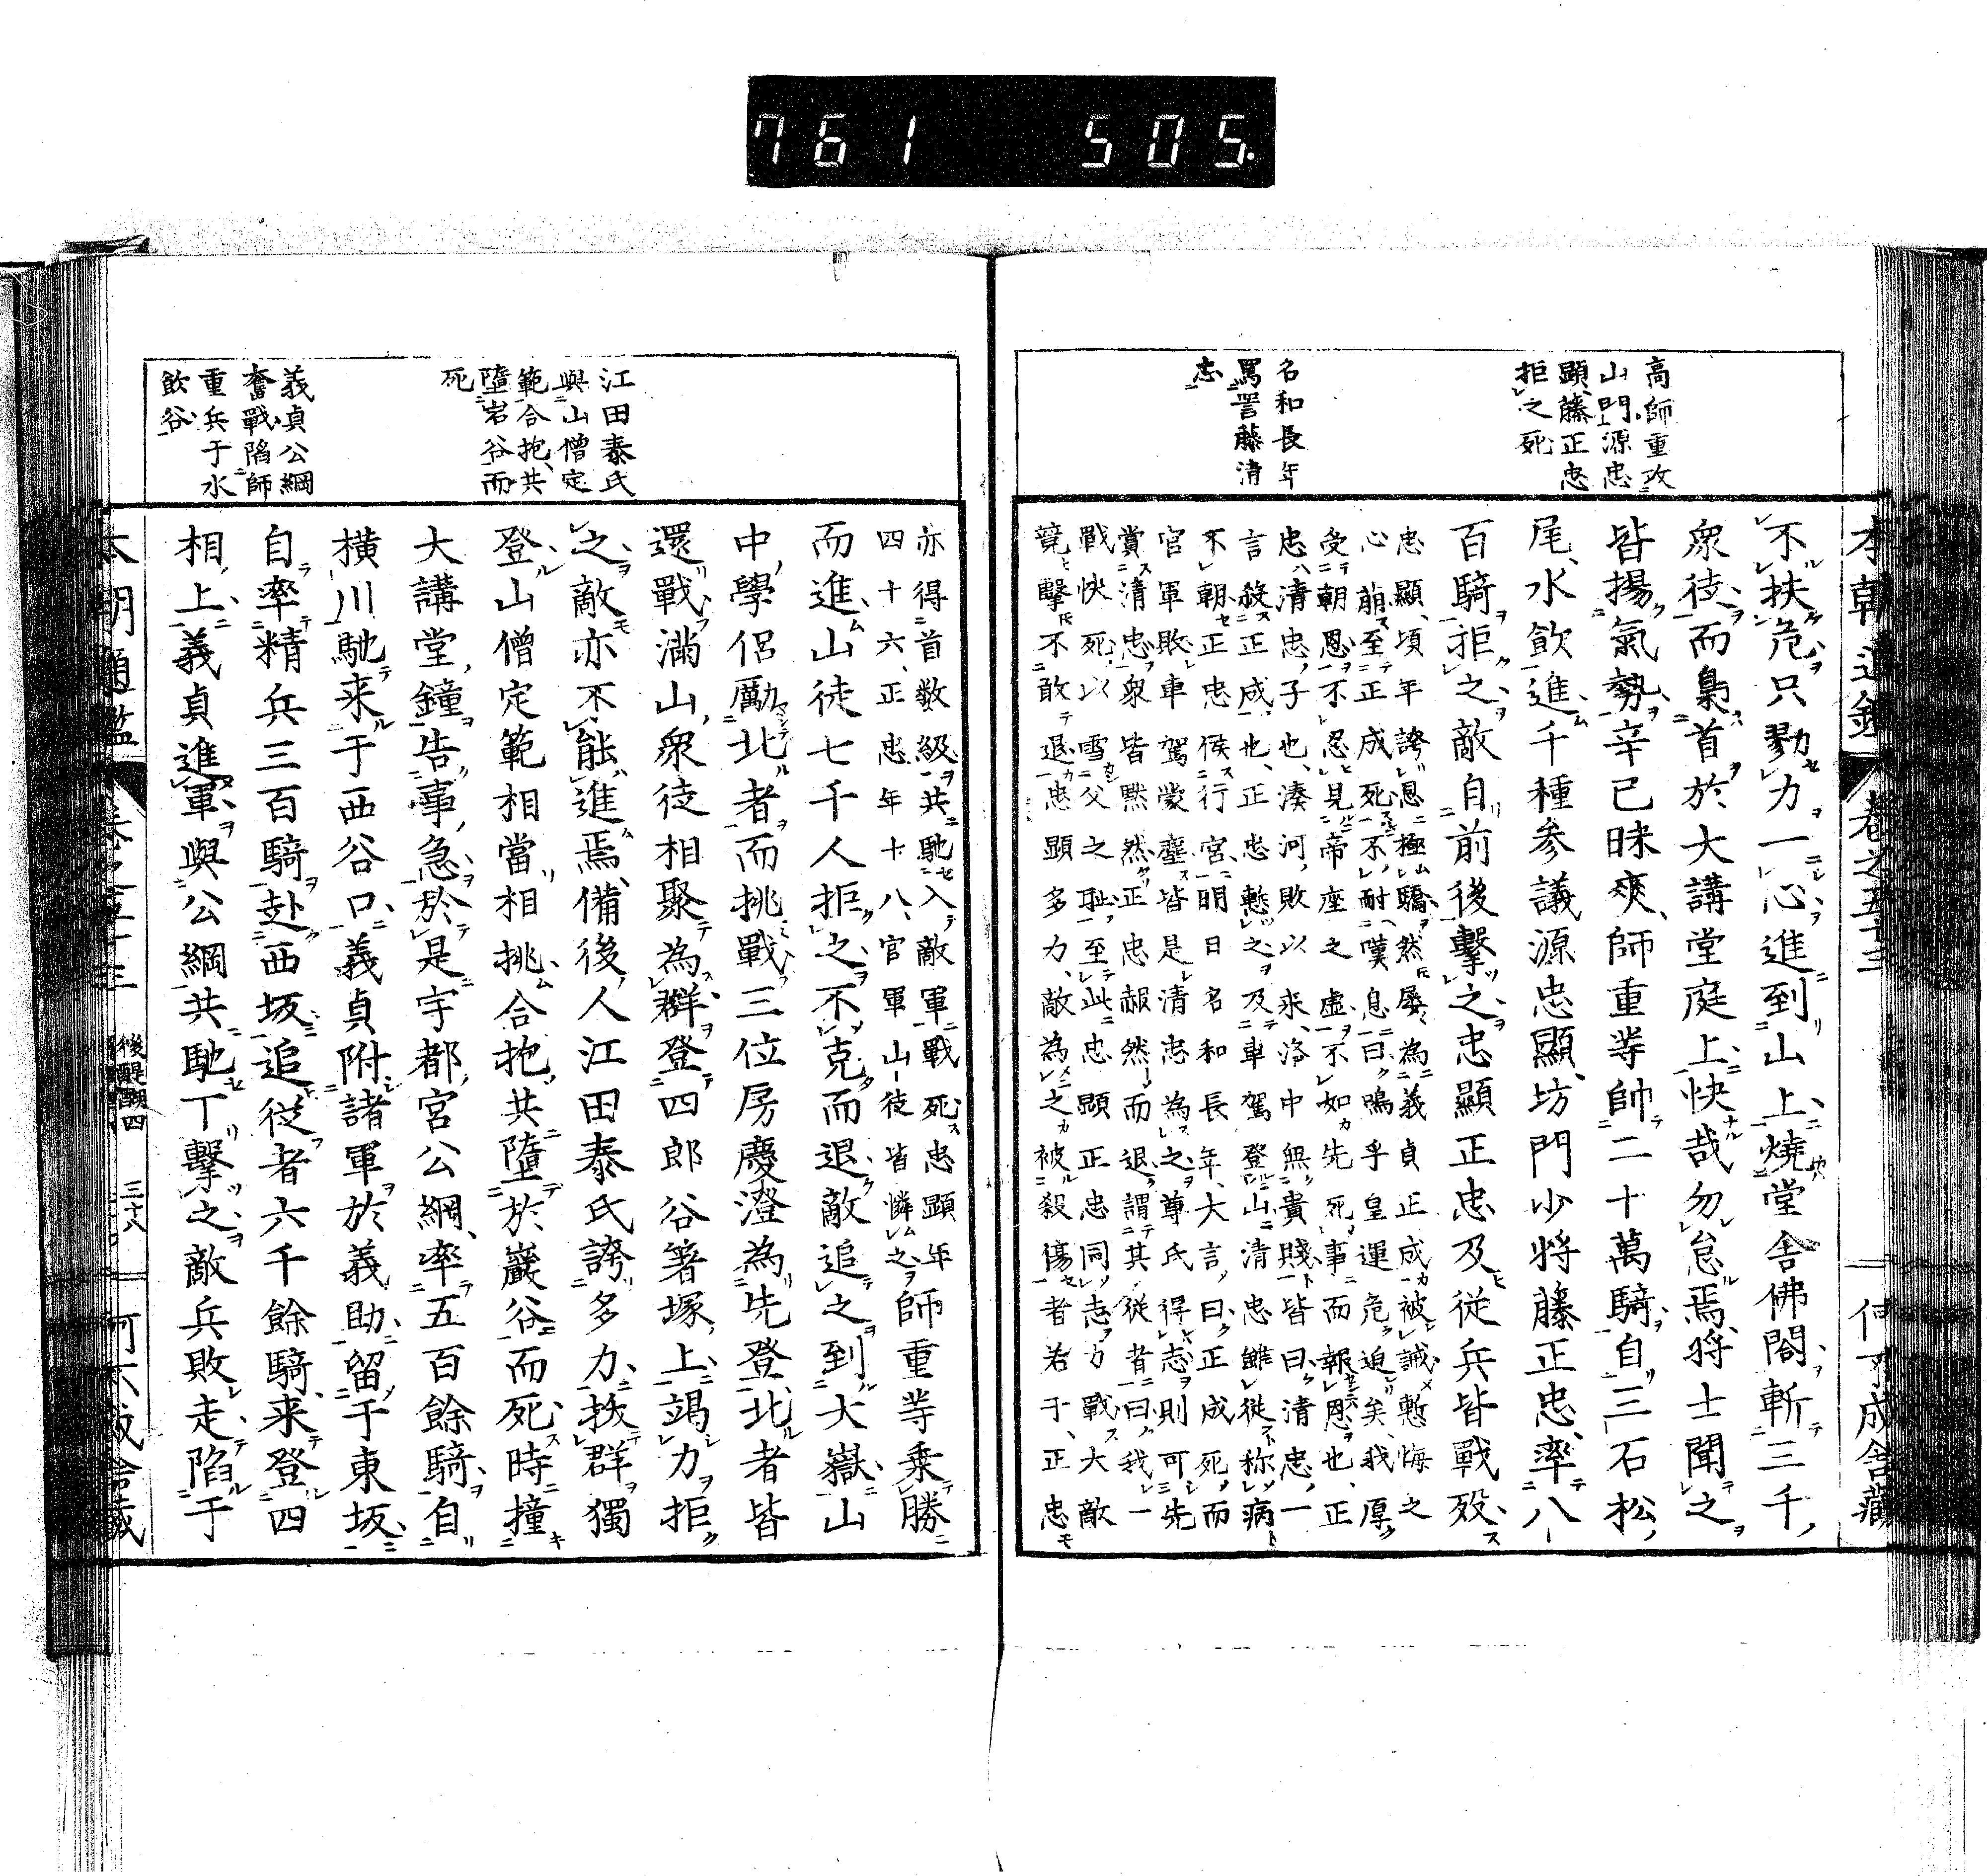 761 505.
高師重攻
山門源忠
顕藤正忠
拒之死
名和長年
罵詈藤清
忠
不扶危只勠力一心進到山上燒堂舎佛閣斬三千
衆徒而梟首於大講堂庭上快哉勿怠焉将士聞之
皆揚氣勢辛巳昧爽師重等帥二十萬騎自三石松
尾水飲進千種参議源忠顯坊門少将藤正忠率八
百騎拒之敵自前後擊之忠顯正忠及従兵皆戰歿
忠顯頃年誇恩極驕然屡為義貞正成被誡慙悔之
心萠至正成死不耐嘆息曰嗚乎皇運危迫矣我厚
受朝恩不忍見帝座之虚不如先死事而報恩也正
忠清忠子也湊河敗以来洛中無貴賤皆曰清忠一
言殺正成也正忠慙之及車駕登山清忠雖従称病
不朝正忠侯行宮明日名和長年大言曰正成死而
官軍敗車駕蒙塵皆是清忠為之尊氏得志則可先
賞清忠衆皆黙然正忠赧然而退謂其従者曰我一
戰快死以雪父之恥至此忠顯正忠同志力戰大敵
競擊不敢退忠顯多力敵為之被殺傷者若干正忠
亦得首数級共馳入敵軍戰死忠顯年
四十六正忠年十八官軍山徒皆憐之
師重等乗勝
而進山徒七千人拒之不克而退敵追之到大嶽山
中學侶勵北者而挑戰三位房慶澄為先登北者皆
還戰滿山衆徒相聚為群登四郎谷箸塚上竭力拒
之敵亦不能進焉備後人江田泰氏誇多力抜群獨
登山僧定範相當相挑合抱共墮於巖谷而死時撞
大講堂鐘告事急於是宇都宮公綱率五百餘騎自
横川馳来于西谷口義貞附諸軍於義助留于東坂
自率精兵三百騎赴西坂追従者六千餘騎来登四
相上義貞進軍與公綱共馳丁擊之敵兵敗走陷于
江田泰氏
與山僧定
範合抱共
墮岩谷而
死
義貞公綱
奮戰陷師
重兵于水
飲谷
後醍醐四 三十八